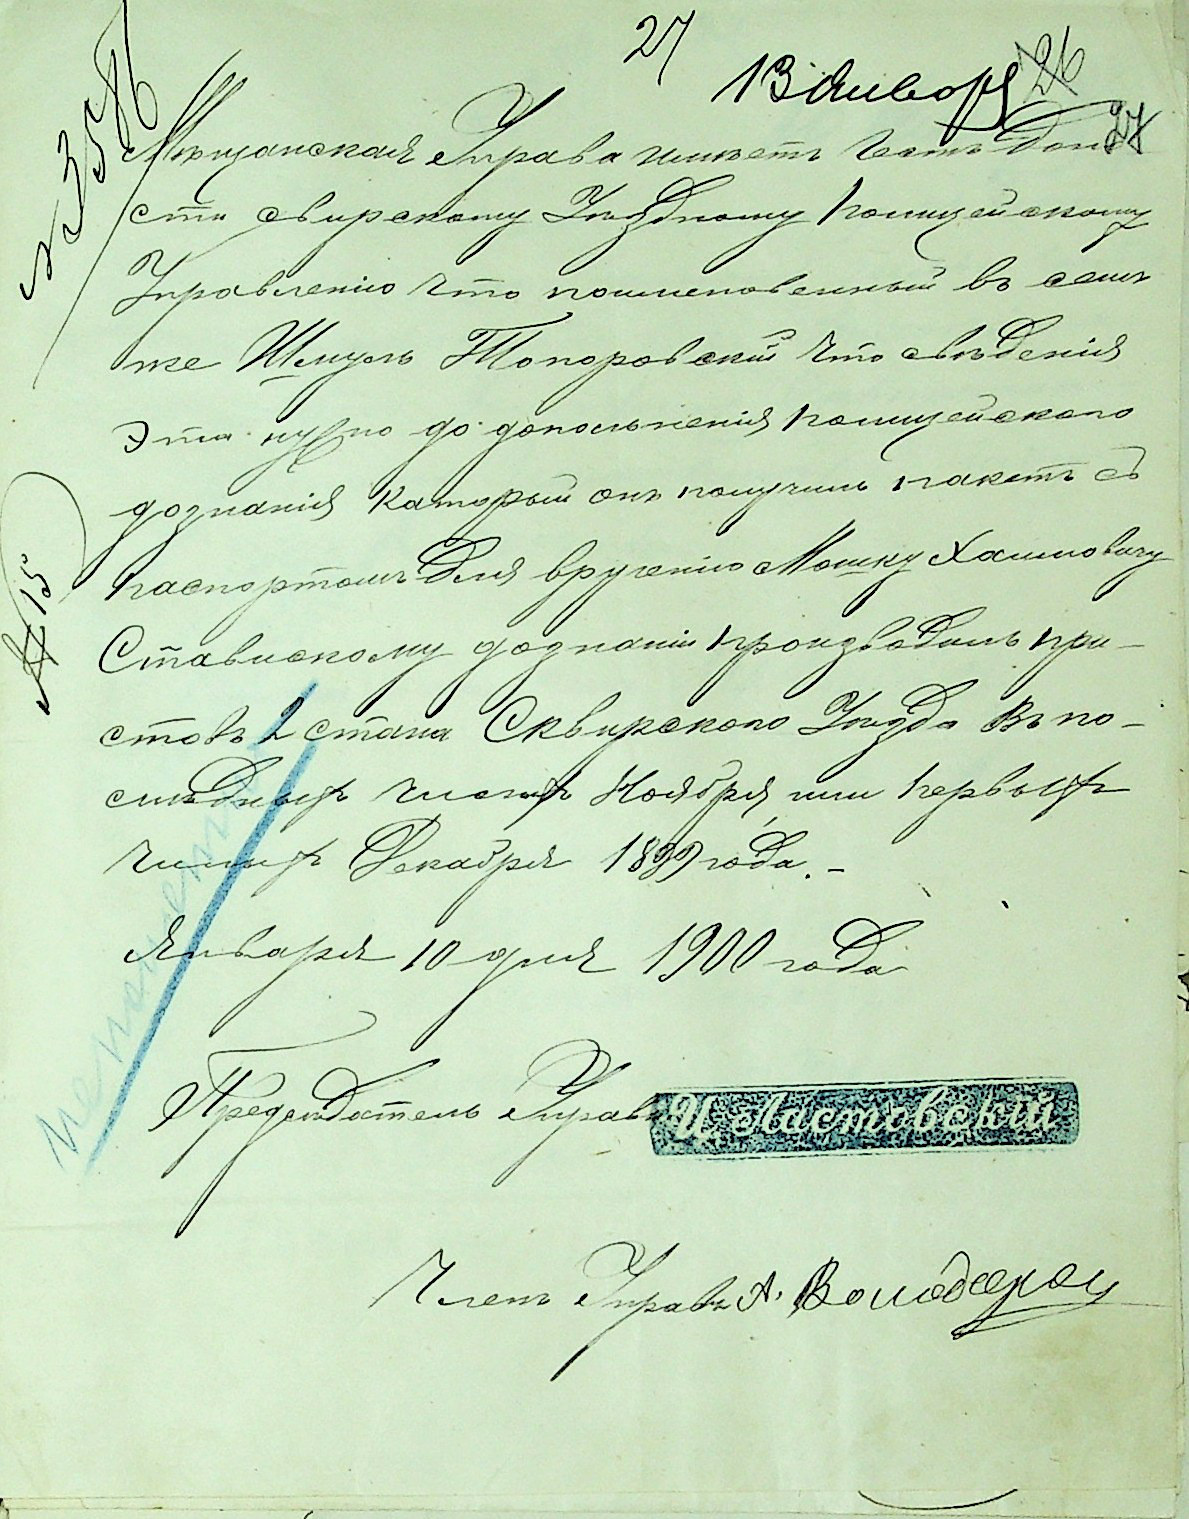 27
13 Января 26
27
№ 3586
Мѣщанская Управа имѣетъ честь доне
сти сквирскому Уѣздному Полицейскому
Управленію что поименованный въ семъ
же Шмуль Топоровскій что свѣденія
Эти нужно до дополненія полицейского
дознанія каторый онъ получилъ пакетъ съ
паспортомъ для врученію Мошку Хаимовичу
№ 15
Ставискому дознаніи производилъ при-
ставъ 2 стана Сквирского Уѣзда въ по-
слѣдныхъ числахъ Ноября или первыхъ
числахъ Декабря 1899 года. -
Января 10 дня 1900 года
Председатель Управы Ц. Ластовскій
Членъ Управы А.